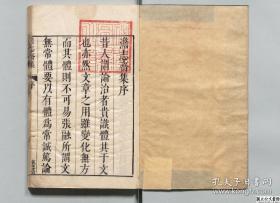 澹志齋集序
昔人謂論治者貴識體其于文
也亦然文章之用雖變化無方
而其體則不可易張融所謂文
無常體要以有體為常誠篤論